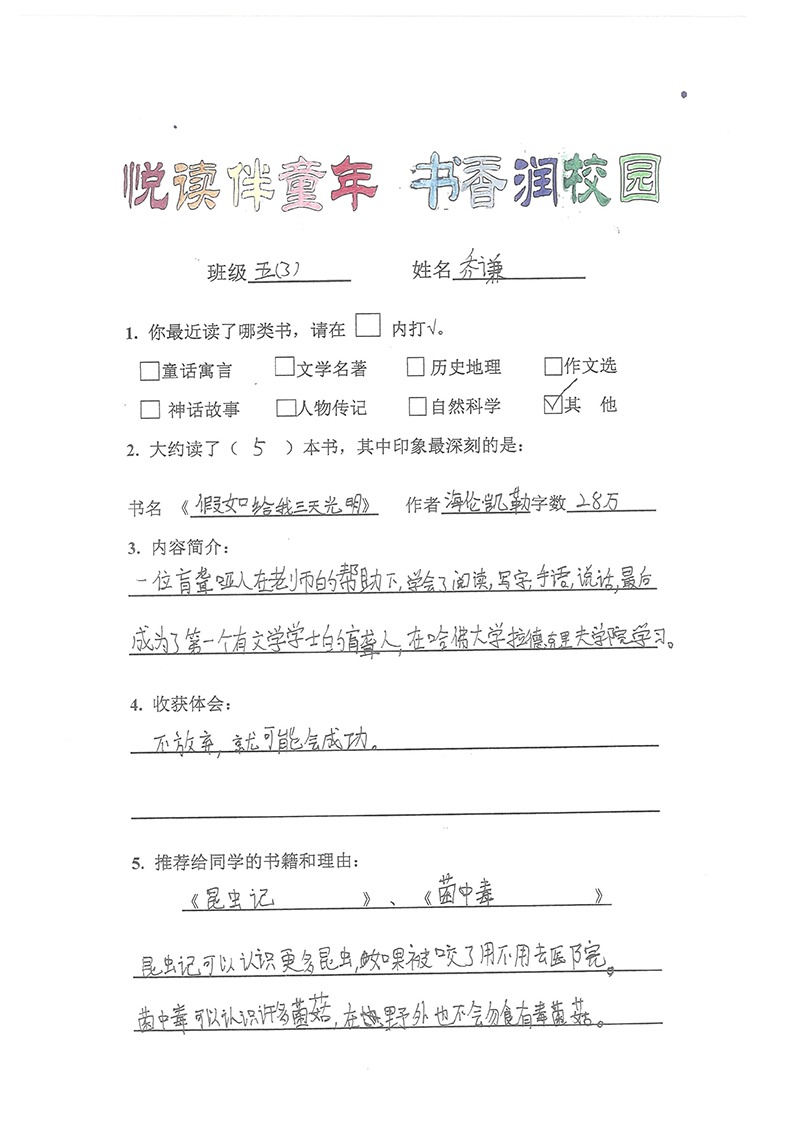 悦读伴童年 书香润校园
班级 五(3) 姓名 乔谦
1. 你最近读了哪类书，请在 □ 内打√。
□童话寓言 □文学名著 □历史地理 □作文选
□神话故事 □人物传记 □自然科学 ☑其 他
2. 大约读了（ 5 ）本书，其中印象最深刻的是：
书名《假如给我三天光明》 作者 海伦凯勒 字数 28万
3. 内容简介：
一位盲聋哑人在老师的帮助下,学会了阅读,写字,手语,说话,最后
成为了第一个有文学学士的盲聋人,在哈佛大学拉德克里夫学院学习。
4. 收获体会：
不放弃,就可能会成功。
5. 推荐给同学的书籍和理由：
《昆虫记 》、《菌中毒 》
昆虫记可以认识更多昆虫,如果被咬了用不用去医院。
菌中毒可以认识许多菌菇,在野外也不会勿食有毒菌菇。